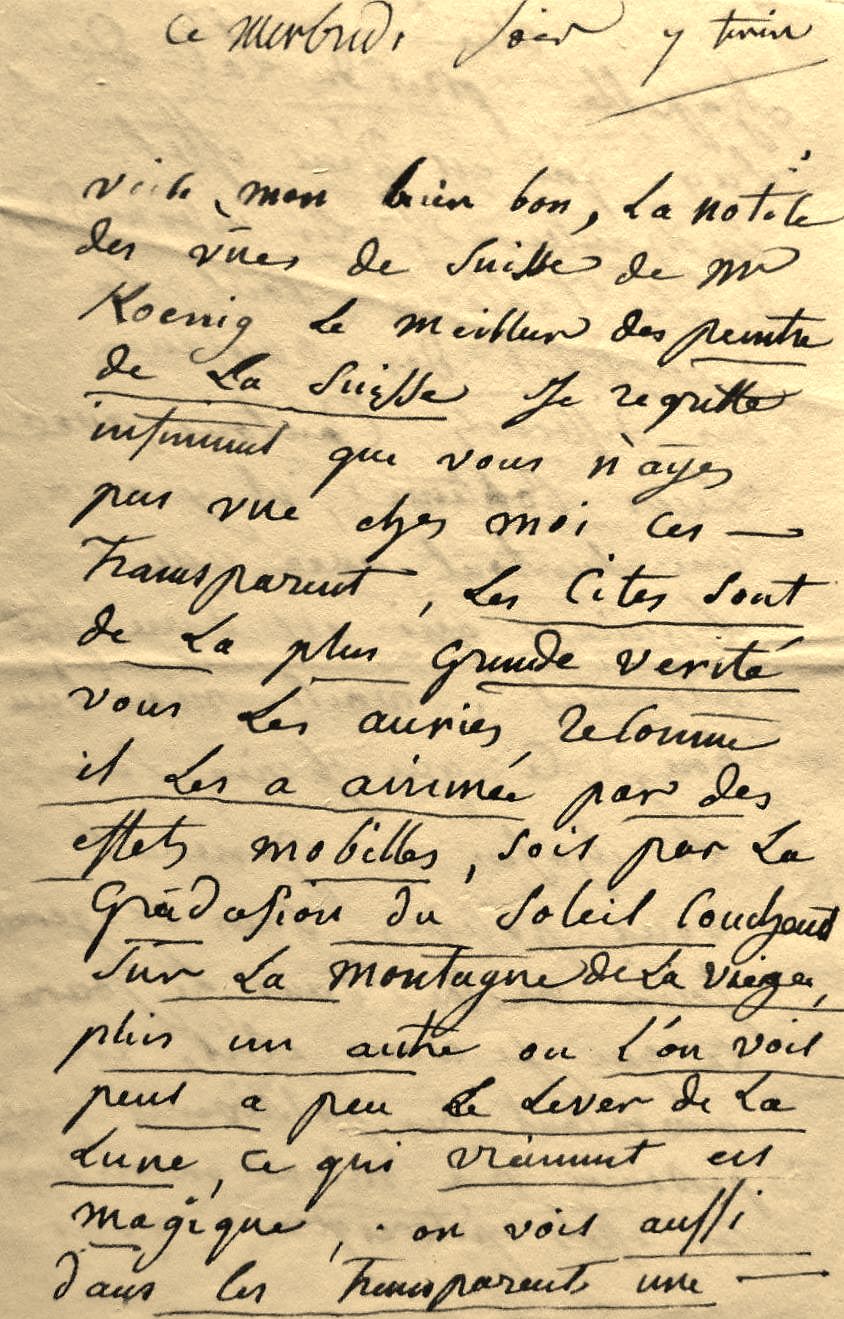 Ce Merbredi Soir 7
voila, mon bien bon, La notile
des vües de Suisse de Mr
Koenig Le meilleur des peintre
de La Suisse Je regrette
infiniment que vous n'ayes
pas vue ches moi ces —
Transparent, Les Cites sont
de La plus Grande verité
vous Les auries reconnue
il Les a animée par des
effets mobilles, soit par La
Gradasion du Soleil Couchant
sur La montagne de La vierge,
plus un autre ou L'on voit
peut a peu Le Lever de La
Lune, ce qui vraiment est
magique, on vois aussi
dans les Transparents une —